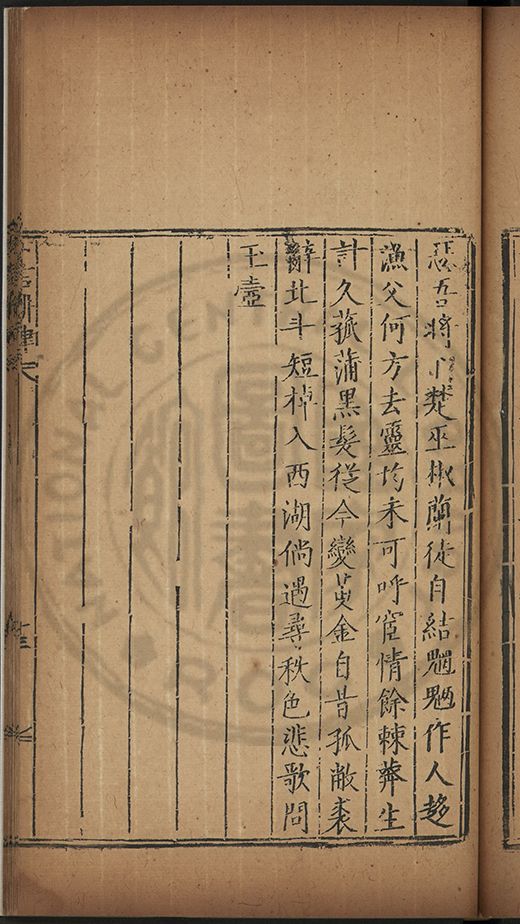 惡吾將卜楚巫椒蘭徒自結魍魎作人趍
漁父何方去靈均未可呼宦情餘棘莽生
計久菰蒲黑髮從今變黃金自昔孤敝裘
辭北斗短棹入西湖倘遇尋秋色悲歌問
玉壺